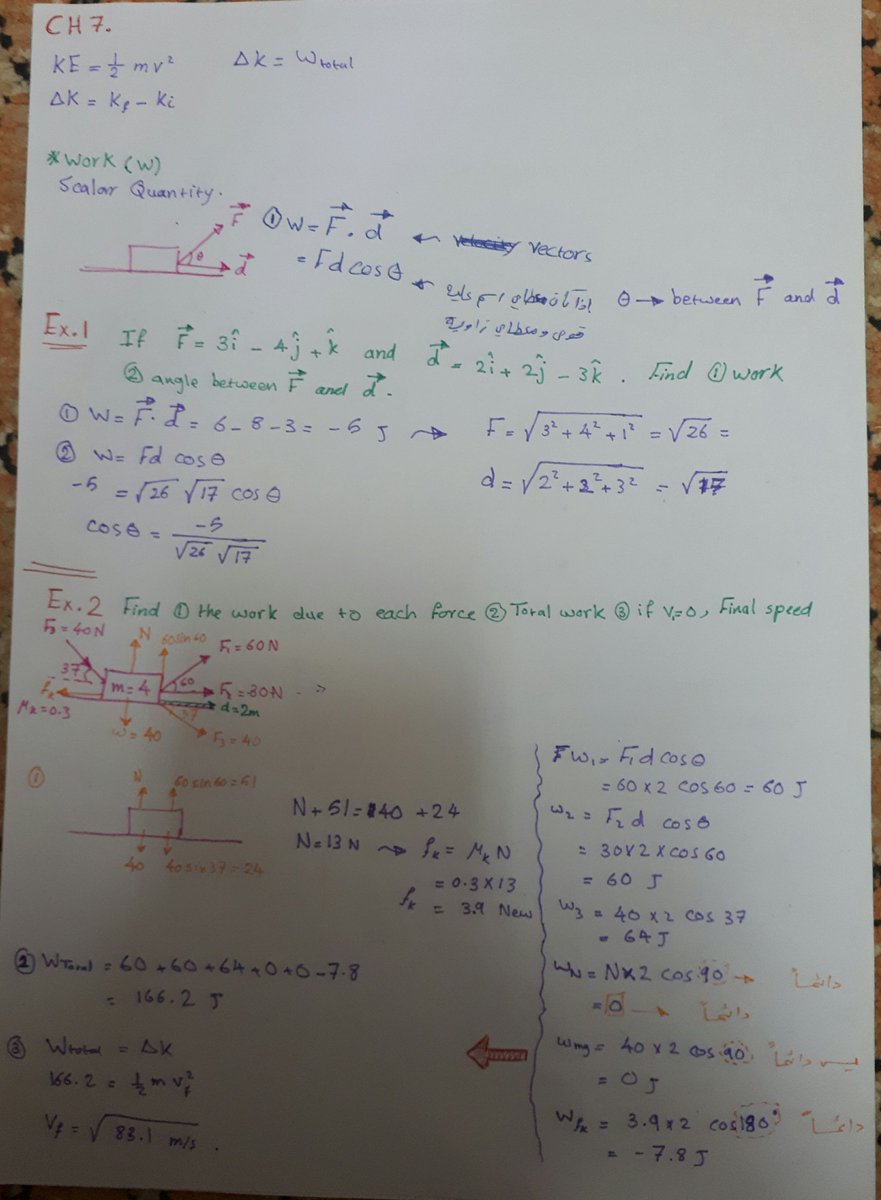 CH 7.
KE = ½ mv²    ΔK = W total
ΔK = Kf - Ki
* Work (W)
Scalar Quantity.
① W = F⃗ . d⃗ ← Vectors
F⃗
θ
d⃗
= Fd cosθ ←
θ → between F⃗ and d⃗
Ex.1 If F⃗ = 3î - 4ĵ + k̂ and d⃗ = 2î + 2ĵ - 3k̂ . Find ① work
② angle between F⃗ and d⃗.
① W = F⃗ . d⃗ = 6 - 8 - 3 = -5 J → F = √(3² + 4² + 1²) = √26 =
② W = Fd cosθ
d = √(2² + 2² + 3²) = √17
-5 = √26 √17 cosθ
cosθ = -5 / √26 √17
Ex.2 Find ① the work due to each force ② Total work ③ if Vi=0, Final speed
F3 = 40N N 60 sin 60 F1 = 60N
37 m = 4 60 F2 = 30N
fk d = 2m
μk = 0.3 37
w = 40 F3 = 40
①
N 60 sin 60 = 51
40 40 sin 37 = 24
N + 51 = 40 + 24
N = 13 N → fk = μk N
= 0.3 × 13
fk = 3.9 New
W1 = F1 d cosθ
= 60 × 2 cos 60 = 60 J
W2 = F2 d cosθ
= 30 × 2 × cos 60
= 60 J
W3 = 40 × 2 cos 37
= 64 J
WN = N × 2 cos 90 → دائماً
= 0 → دائماً
Wmg = 40 × 2 cos 90 ليس دائماً
= 0 J
Wfk = 3.9 × 2 cos 180° دائماً
= -7.8 J
② WTotal = 60 + 60 + 64 + 0 + 0 - 7.8
= 166.2 J
③ Wtotal = ΔK
166.2 = ½ m vf²
Vf = √83.1 m/s .